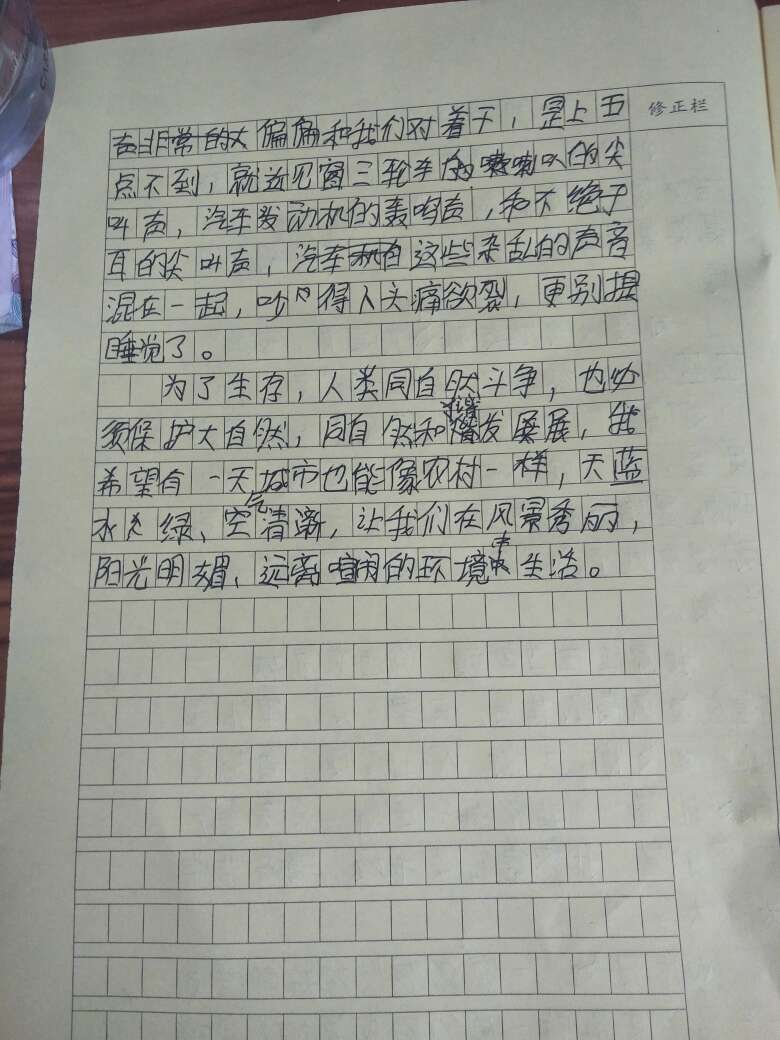 修正栏
偏偏和我们对着干，早上五
点不到，就远见窗三轮车的喇叭的尖
叫声，汽车发动机的轰鸣声，和不绝于
耳的尖叫声，汽车这些杂乱的声音
混在一起，吵得人头痛欲裂，更别提
睡觉了。
为了生存，人类同自然斗争，也必
须保护大自然，同自然和谐发展，我
希望有一天城市也能像农村一样，天蓝
水绿、空气清渐，让我们在风景秀丽，
阳光明媚、远离喧闹的环境中生活。